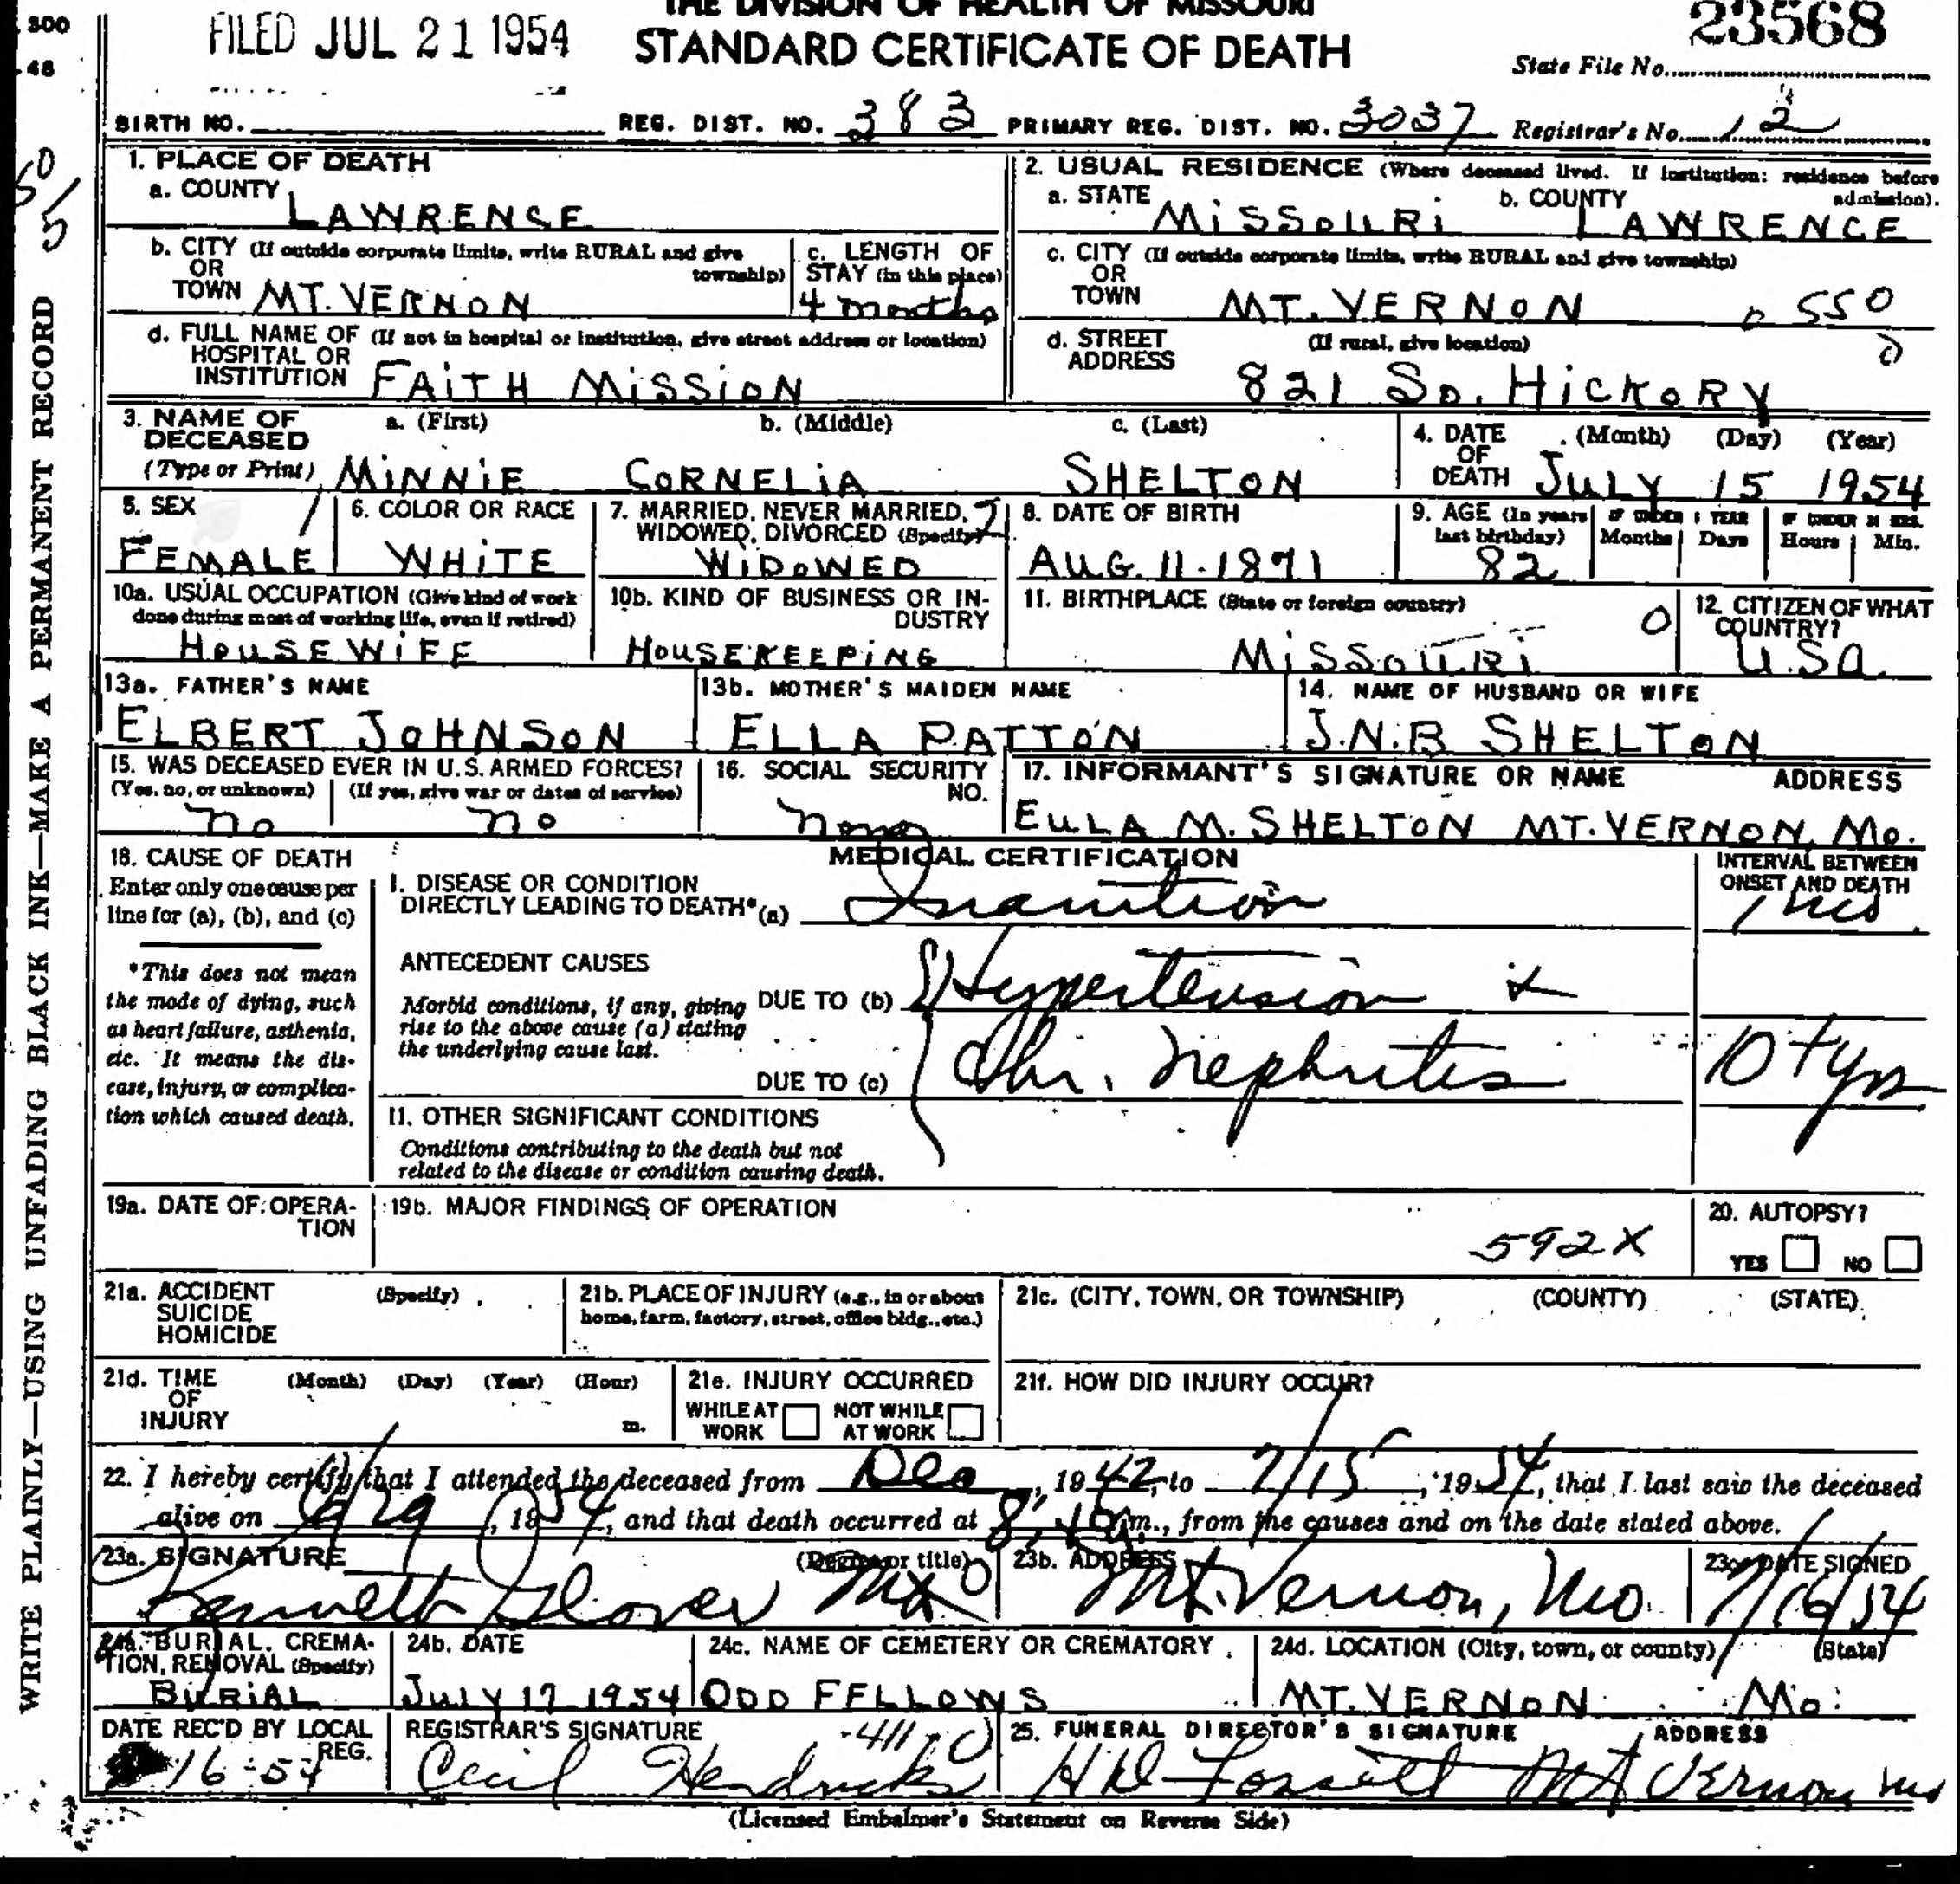 300
48
FILED JUL 21 1954
THE DIVISION OF HEALTH OF MISSOURI
STANDARD CERTIFICATE OF DEATH
23568
State File No.
BIRTH NO. REG. DIST. NO. 383 PRIMARY REG. DIST. NO. 3037 Registrar's No. 12
WRITE PLAINLY—USING UNFADING BLACK INK—MAKE A PERMANENT RECORD
1. PLACE OF DEATH
a. COUNTY
LAWRENCE
b. CITY (If outside corporate limits, write RURAL and give township)
OR
TOWN MT. VERNON
c. LENGTH OF
STAY (in this place)
4 months
d. FULL NAME OF (If not in hospital or institution, give street address or location)
HOSPITAL OR
INSTITUTION FAITH MISSION
2. USUAL RESIDENCE (Where deceased lived. If institution: residence before admission).
a. STATE MISSOURI b. COUNTY LAWRENCE
c. CITY (If outside corporate limits, write RURAL and give township)
OR
TOWN MT. VERNON 0550
0
d. STREET (If rural, give location)
ADDRESS
821 So. HICKORY
3. NAME OF DECEASED
(Type or Print)
a. (First) b. (Middle) c. (Last)
MINNIE CORNELIA SHELTON
4. DATE OF DEATH (Month) (Day) (Year)
JULY 15 1954
5. SEX
FEMALE
6. COLOR OR RACE
WHITE
7. MARRIED, NEVER MARRIED,
WIDOWED, DIVORCED (Specify)
WIDOWED
8. DATE OF BIRTH
AUG. 11-1871
9. AGE (In years last birthday)
82
IF UNDER 1 YEAR
Months Days
IF UNDER 24 HRS.
Hours Min.
10a. USUAL OCCUPATION (Give kind of work done during most of working life, even if retired)
HOUSEWIFE
10b. KIND OF BUSINESS OR INDUSTRY
HOUSEKEEPING
11. BIRTHPLACE (State or foreign country)
MISSOURI 0
12. CITIZEN OF WHAT COUNTRY?
U.S.A.
13a. FATHER'S NAME
ELBERT JOHNSON
13b. MOTHER'S MAIDEN NAME
ELLA PATTON
14. NAME OF HUSBAND OR WIFE
J.N.B SHELTON
15. WAS DECEASED EVER IN U.S. ARMED FORCES?
(Yes, no, or unknown) (If yes, give war or dates of service)
no no
16. SOCIAL SECURITY NO.
none
17. INFORMANT'S SIGNATURE OR NAME ADDRESS
EULA M. SHELTON MT. VERNON, Mo.
18. CAUSE OF DEATH
Enter only one cause per
line for (a), (b), and (c)
*This does not mean
the mode of dying, such
as heart failure, asthenia,
etc. It means the dis-
ease, injury, or complica-
tion which caused death.
MEDICAL CERTIFICATION
I. DISEASE OR CONDITION
DIRECTLY LEADING TO DEATH* (a) Inanition
ANTECEDENT CAUSES
Morbid conditions, if any, giving
rise to the above cause (a) stating
the underlying cause last.
DUE TO (b) Hypertension &
DUE TO (c) Chr. Nephritis
INTERVAL BETWEEN
ONSET AND DEATH
1 mo
10 + yrs
II. OTHER SIGNIFICANT CONDITIONS
Conditions contributing to the death but not
related to the disease or condition causing death.
19a. DATE OF OPERA-
TION
19b. MAJOR FINDINGS OF OPERATION
592X
20. AUTOPSY?
YES NO
21a. ACCIDENT (Specify)
SUICIDE
HOMICIDE
21b. PLACE OF INJURY (e.g., in or about
home, farm, factory, street, office bldg., etc.)
21c. (CITY, TOWN, OR TOWNSHIP) (COUNTY) (STATE)
21d. TIME (Month) (Day) (Year) (Hour)
OF
INJURY m.
21e. INJURY OCCURRED
WHILE AT WORK NOT WHILE AT WORK
21f. HOW DID INJURY OCCUR?
22. I hereby certify that I attended the deceased from Dec, 1942, to 7/15, 1954, that I last saw the deceased
alive on 6/29, 1954, and that death occurred at m., from the causes and on the date stated above.
23a. SIGNATURE (Degree or title)
Kenneth Glover MD
23b. ADDRESS
Mt. Vernon, Mo.
23c. DATE SIGNED
7/16/54
24a. BURIAL, CREMA-
TION, REMOVAL (Specify)
BURIAL
24b. DATE
JULY 17-1954
24c. NAME OF CEMETERY OR CREMATORY
ODD FELLOWS
24d. LOCATION (City, town, or county) (State)
MT. VERNON Mo.
DATE REC'D BY LOCAL REG.
16-54
REGISTRAR'S SIGNATURE
Cecil Hendricks
25. FUNERAL DIRECTOR'S SIGNATURE ADDRESS
H D Fossett Mt Vernon Mo
(Licensed Embalmer's Statement on Reverse Side)